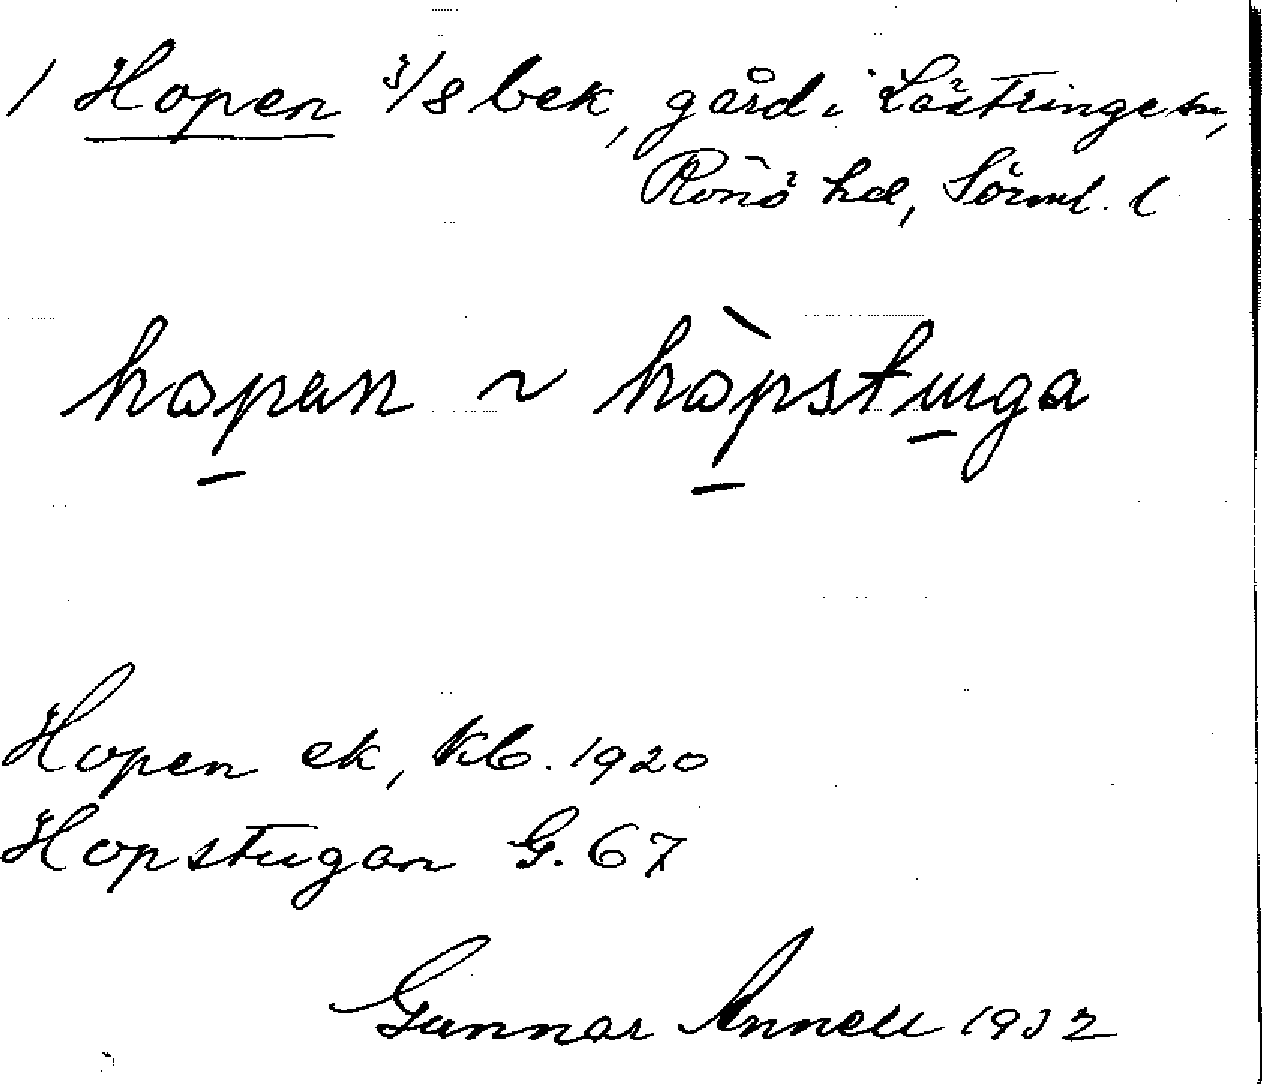 1 Hopen 3/8 bek, gård i Lästringe sn,
Rönö hd, Sörml. l
hopen ~ hòpstuga
Hopen ek, kb. 1920
Hopstugan G. 67
Gunnar Annell 1932